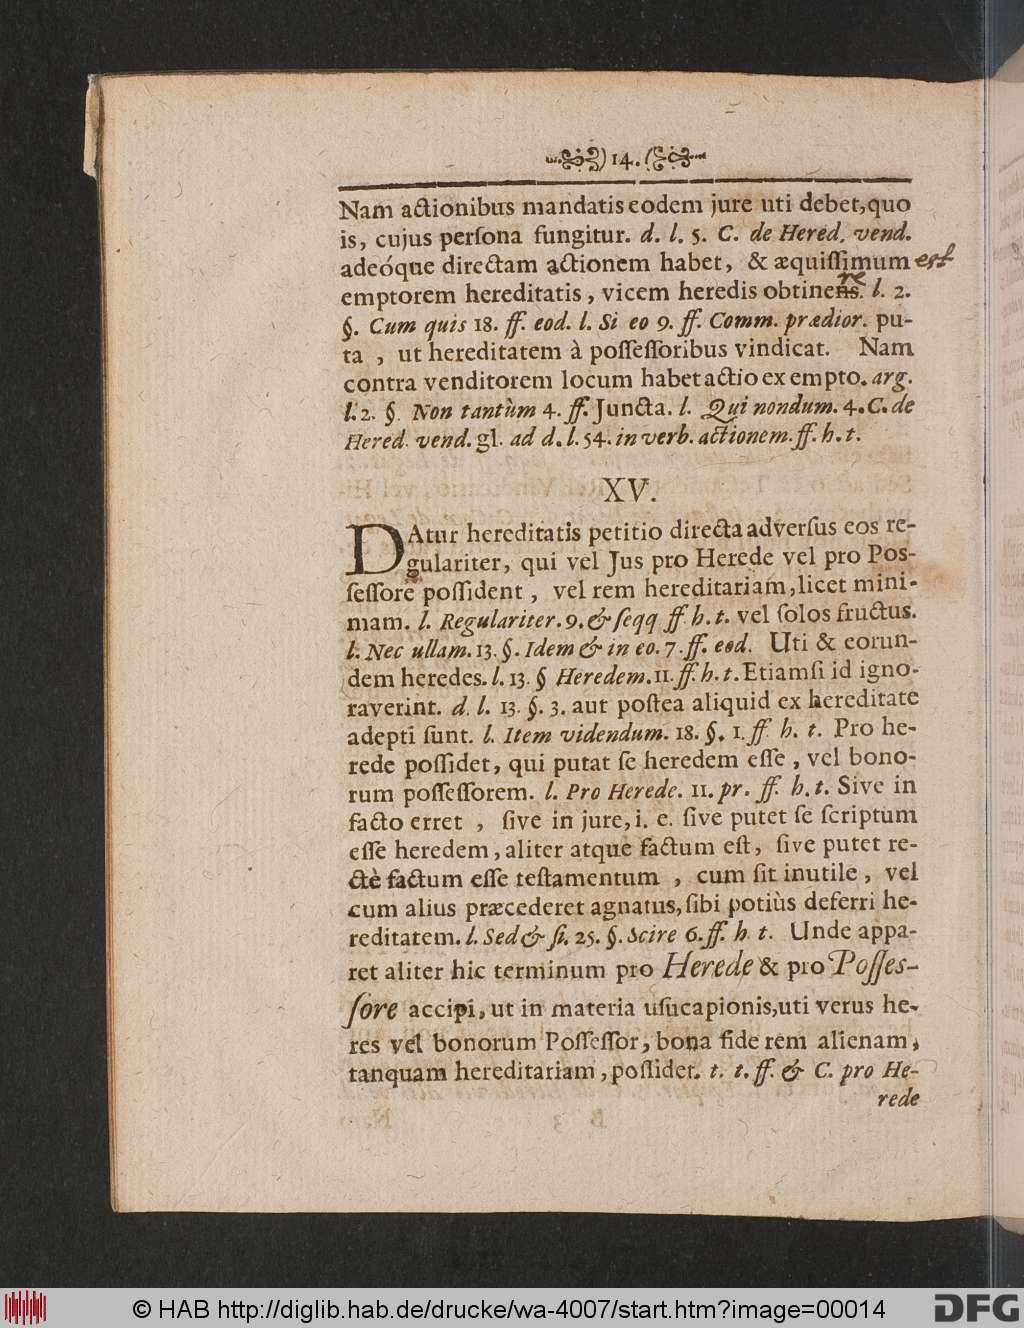 )14.(
Nam actionibus mandatis eodem jure uti debet,quo
is, cujus perſona fungitur. d. l. 5. C. de Hered. vend.
adeóque directam actionem habet, & æquiſſimum est
emptorem hereditatis, vicem heredis obtinens. re l. 2.
§. Cum quis 18. ff. eod. l. Si eo 9. ff. Comm. prædior. pu-
ta , ut hereditatem à poſſeſſoribus vindicat. Nam
contra venditorem locum habet actio ex empto. arg.
l. 2. §. Non tantùm 4. ff. Juncta. l. Qui nondum. 4. C. de
Hered. vend. gl. ad d. l. 54. in verb. actionem. ff. h. t.
XV.
DAtur hereditatis petitio directa adverſus eos re-
gulariter, qui vel Jus pro Herede vel pro Pos-
ſeſſore poſſident , vel rem hereditariam, licet mini-
mam. l. Regulariter. 9. & ſeqq ff. h. t. vel ſolos fructus.
l. Nec ullam. 13. §. Idem & in eo. 7. ff. eod. Uti & eorun-
dem heredes. l. 13. § Heredem. 11. ff. h. t. Etiamſi id igno-
raverint. d. l. 13. §. 3. aut poſtea aliquid ex hereditate
adepti ſunt. l. Item videndum. 18. §. 1. ff. h. t. Pro he-
rede poſſidet, qui putat ſe heredem eſſe, vel bono-
rum poſſeſſorem. l. Pro Herede. 11. pr. ff. h. t. Sive in
facto erret , ſive in jure, i. e. ſive putet ſe ſcriptum
eſſe heredem, aliter atque factum eſt, ſive putet re-
ctè factum eſſe teſtamentum , cum ſit inutile, vel
cum alius præcederet agnatus, ſibi potiùs deferri he-
reditatem. l. Sed & ſi. 25. §. Scire 6. ff. h. t. Unde appa-
ret aliter hic terminum pro Herede & pro Poſſes-
ſore accipi, ut in materia uſucapionis, uti verus he-
res vel bonorum Poſſeſſor, bona fide rem alienam,
tanquam hereditariam, poſſidet. t. t. ff. & C. pro He-
rede
© HAB http://diglib.hab.de/drucke/wa-4007/start.htm?image=00014
DFG